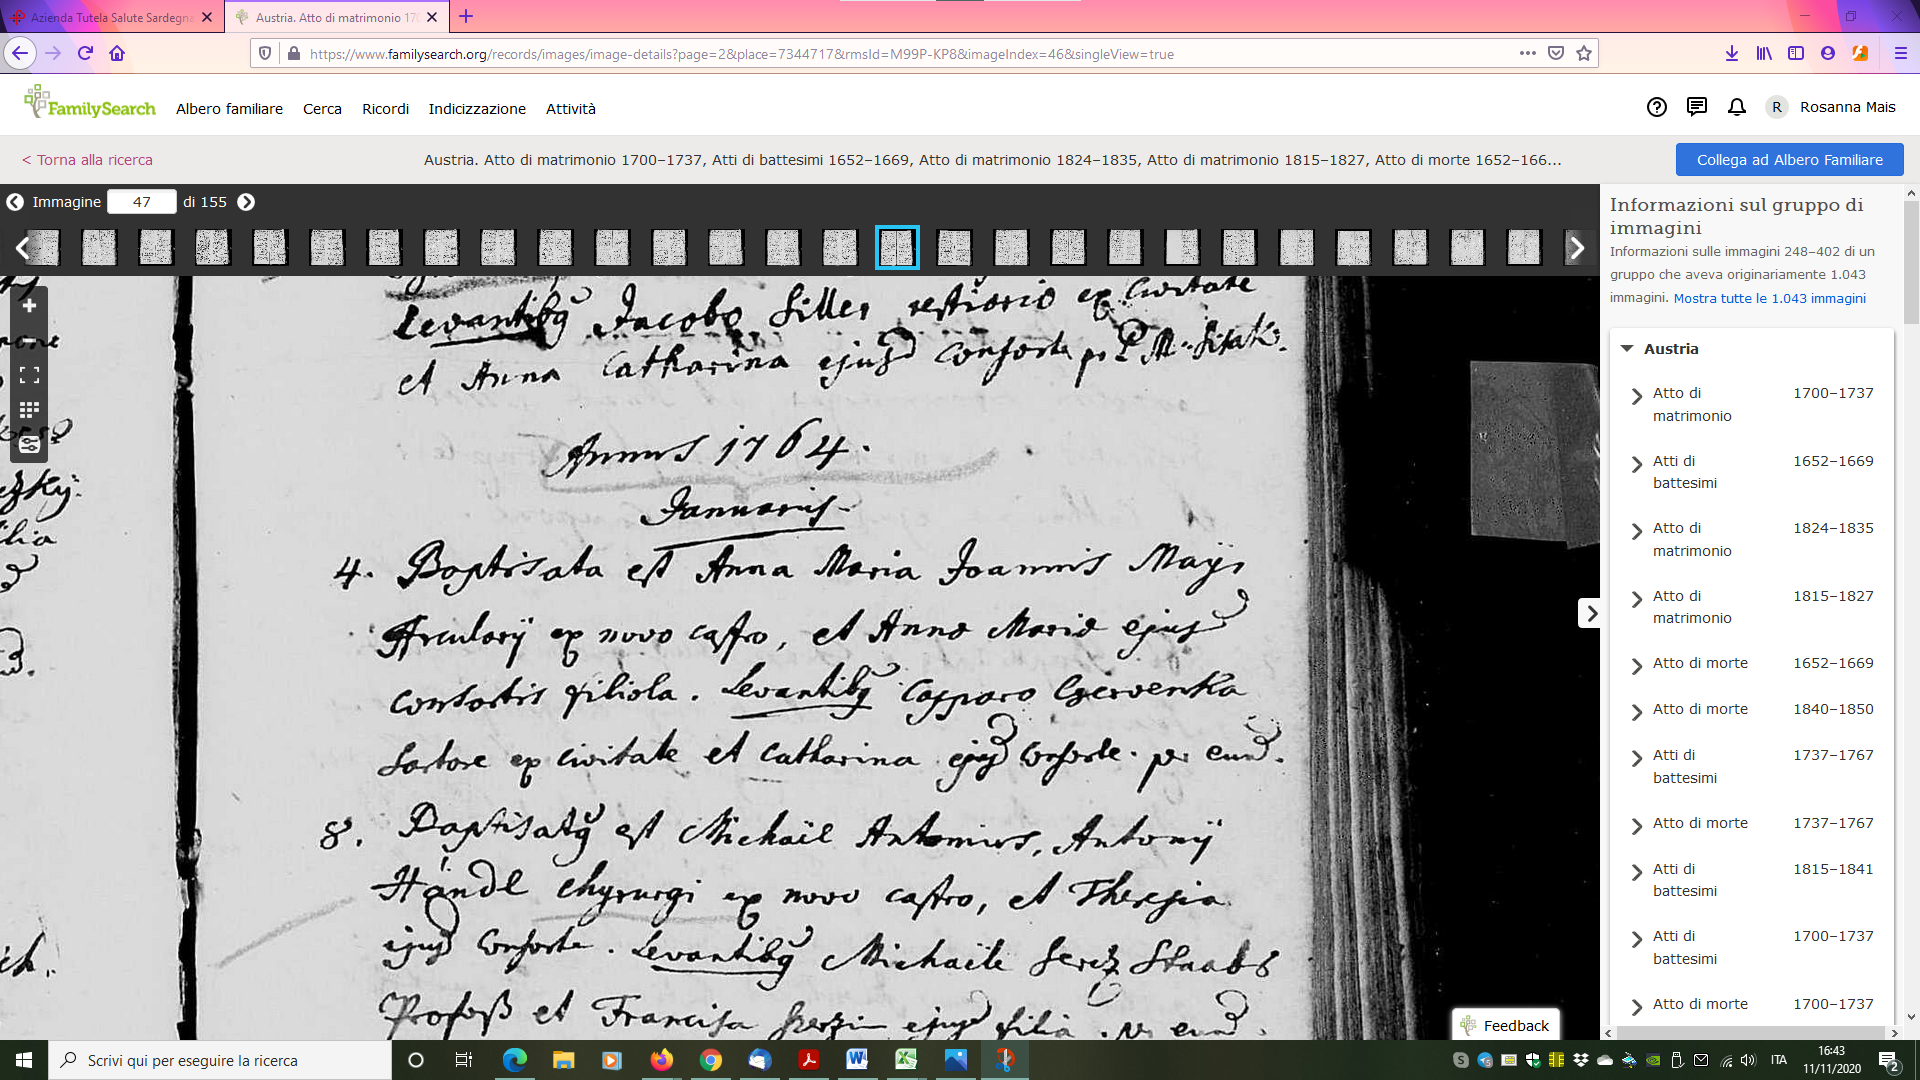 Azienda Tutela Salute Sardegna
Austria. Atto di matrimonio 170
https://www.familysearch.org/records/images/image-details?page=2&place=7344717&rmsId=M99P-KP8&imageIndex=46&singleView=true
FamilySearch
Albero familiare
Cerca
Ricordi
Indicizzazione
Attività
R
Rosanna Mais
< Torna alla ricerca
Austria. Atto di matrimonio 1700–1737, Atti di battesimi 1652–1669, Atto di matrimonio 1824–1835, Atto di matrimonio 1815–1827, Atto di morte 1652–166...
Collega ad Albero Familiare
Immagine 47 di 155
Levantibq Jacobo Siller ex Civitate
et Anna Catharina ejusd Consorte
Annus 1764.
Januarius
4. Baptisata est Anna Maria Joannis Mays
Arcularij ex novo castro, et Anna Maria ejusd
consortis filiola. Levantibq Casparo Czervenka
Sartore ex civitate et Catharina ejusd Consorte. per eund.
8. Baptisatq est Michaël Antonius, Antonij
Händl Chyrurgi ex novo castro, et Theresia
ejusd Consorte. Levantibq Michaële Staabs
Profoß et Francisca ejusd filia. per eund.
Informazioni sul gruppo di
immagini
Informazioni sulle immagini 248–402 di un
gruppo che aveva originariamente 1.043
immagini. Mostra tutte le 1.043 immagini
Austria
Atto di matrimonio 1700–1737
Atti di battesimi 1652–1669
Atto di matrimonio 1824–1835
Atto di matrimonio 1815–1827
Atto di morte 1652–1669
Atto di morte 1840–1850
Atti di battesimi 1737–1767
Atto di morte 1737–1767
Atti di battesimi 1815–1841
Atti di battesimi 1700–1737
Atto di morte 1700–1737
Feedback
Scrivi qui per eseguire la ricerca
ITA
16:43
11/11/2020
2